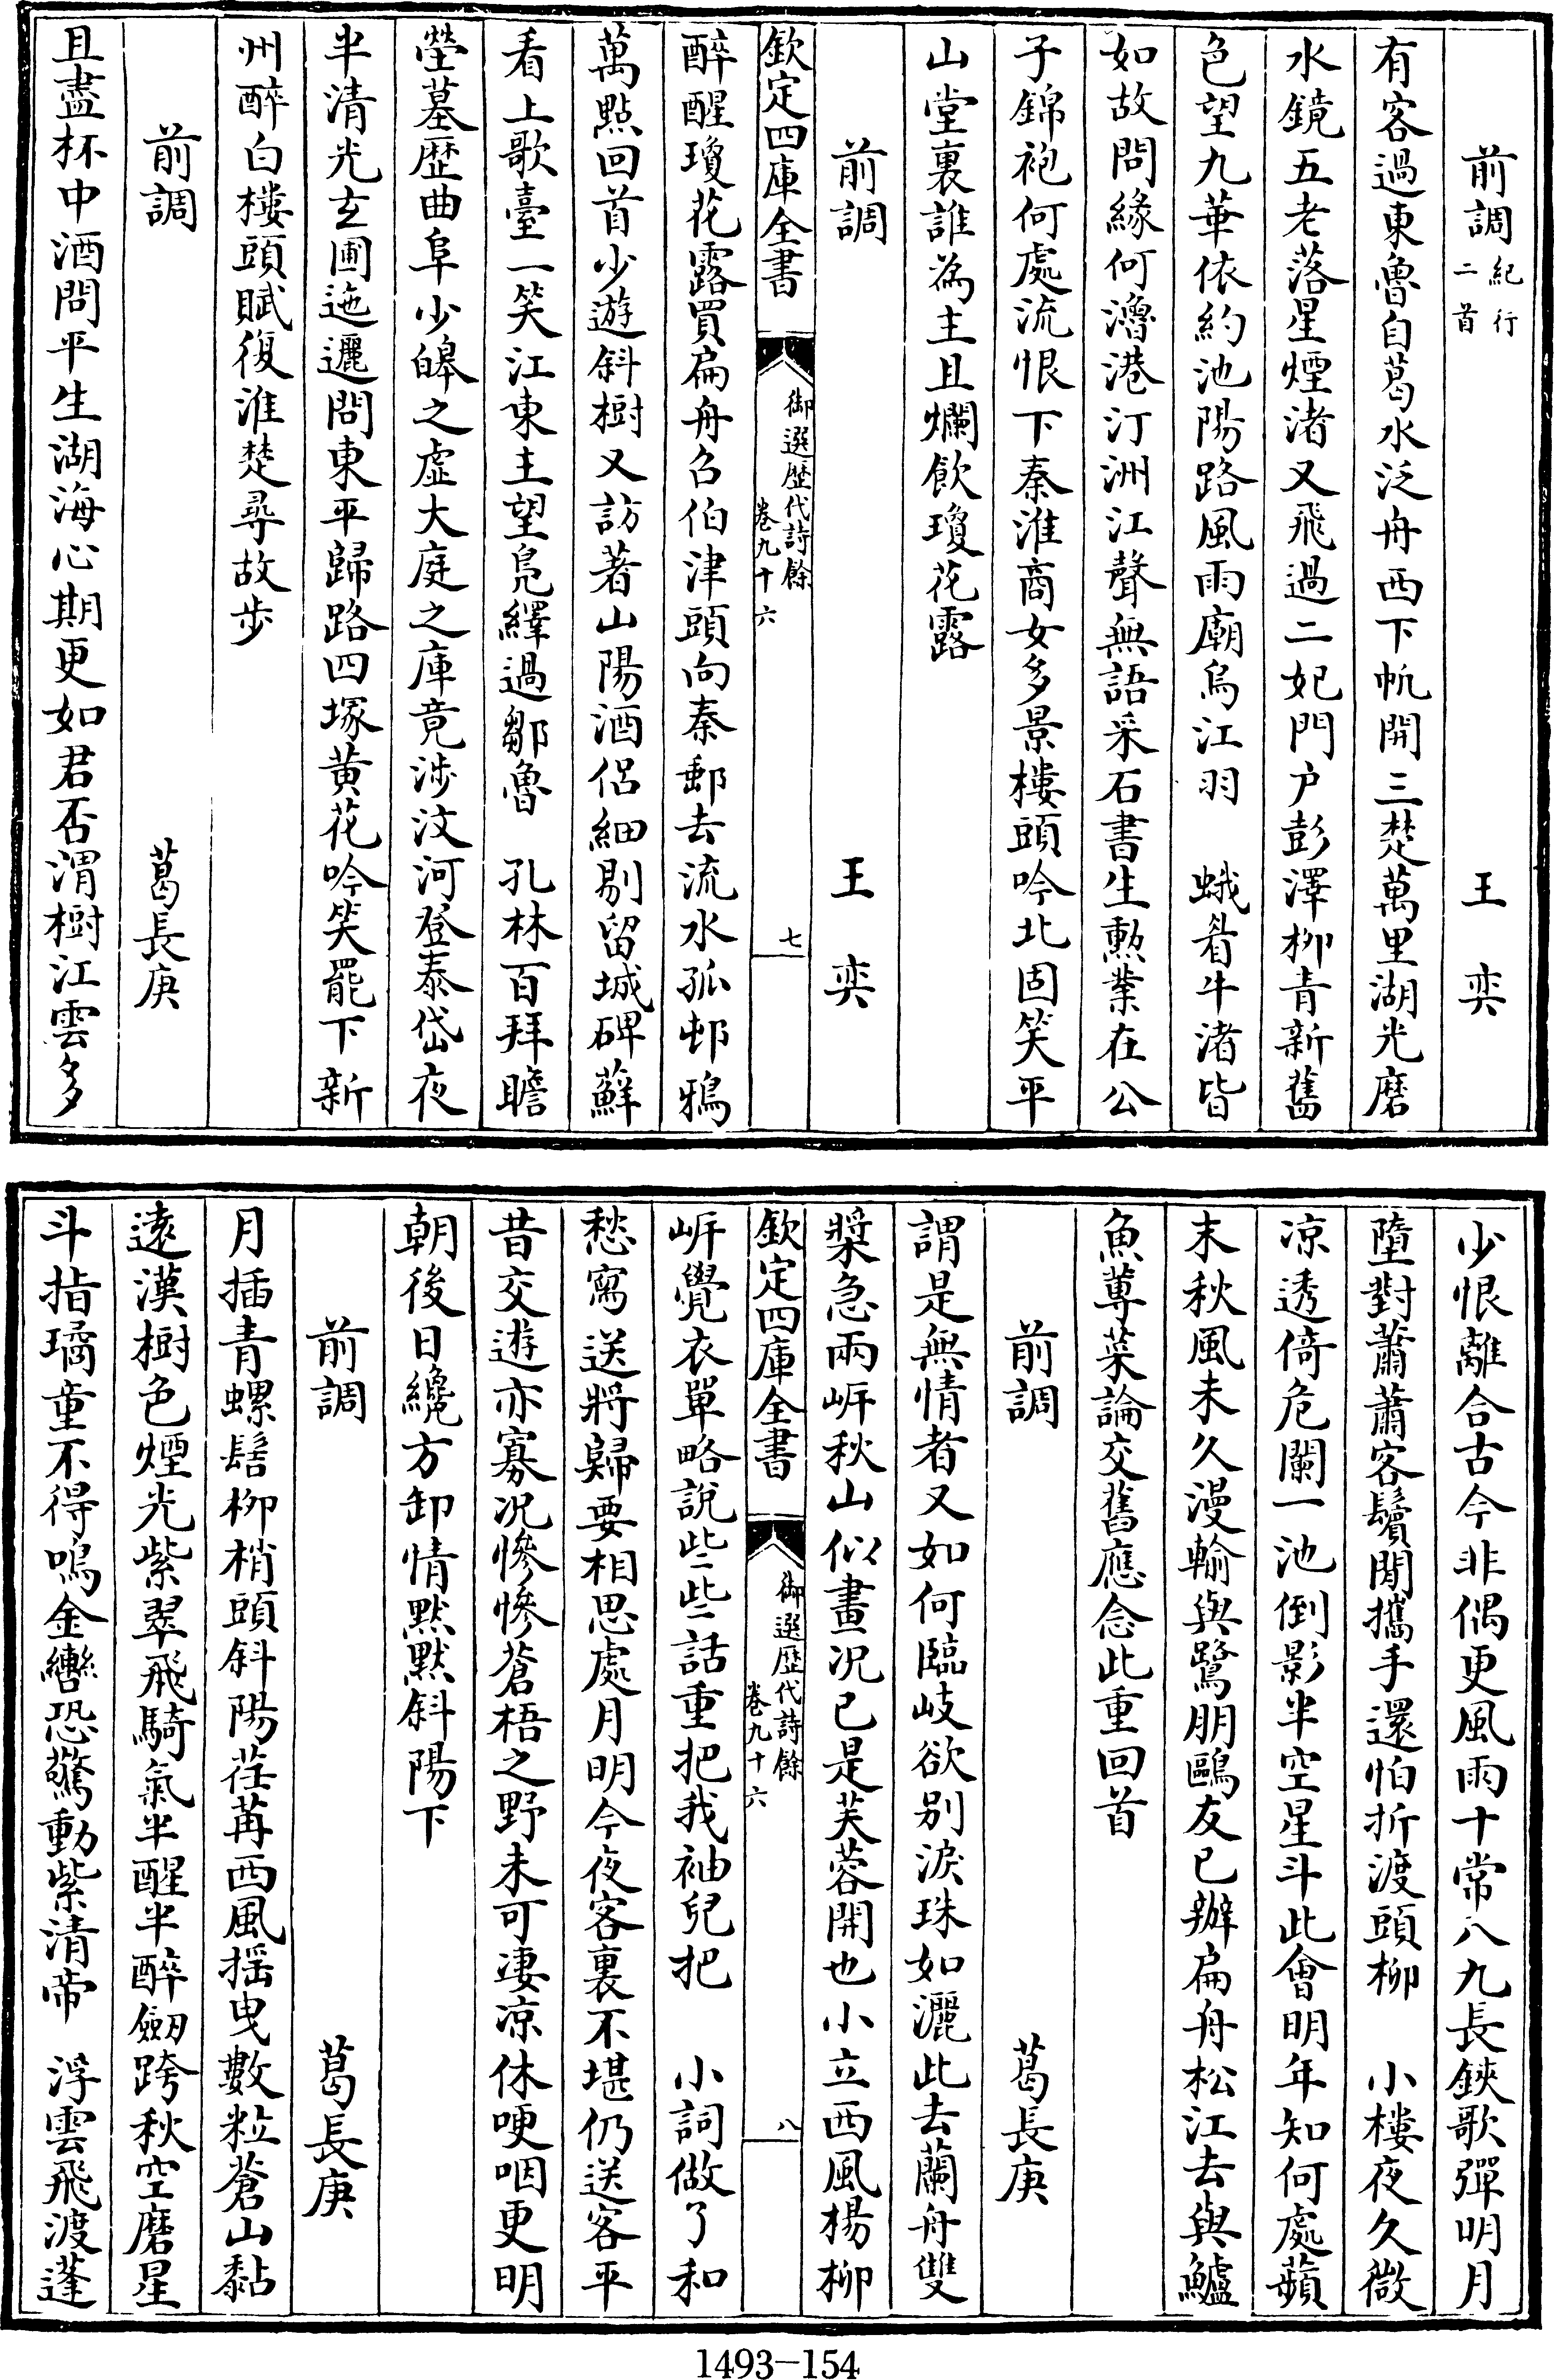 前調紀行二首　王奕
有客過東魯自葛水泛舟西下帆開三楚萬里湖光磨
水鏡五老落星煙渚又飛過二妃門户彭澤柳青新舊
色望九華依約池陽路風雨廟烏江羽　蛾眉牛渚皆
如故問緣何瀂港汀洲江聲無語采石書生勲業在公
子錦袍何處流恨下秦淮商女多景樓頭吟北固笑平
山堂裏誰為主且爛飲瓊花露
前調　王奕
欽定四庫全書　御選歷代詩餘　卷九十六　七
醉醒瓊花露買扁舟召伯津頭向秦郵去流水孤邨鴉
萬點回首少遊斜樹又訪著山陽酒侶細剔留城碑蘚
看上歌臺一笑江東主望鳧繹過鄒魯　孔林百拜瞻
塋墓歷曲阜少皞之虛大庭之庫竟涉汶河登泰岱夜
半清光玄圃迤邐問東平歸路四塚黄花吟笑罷下新
州醉白樓頭賦復淮楚尋故步
前調　葛長庚
且盡杯中酒問平生湖海心期更如君否渭樹江雲多
少恨離合古今非偶更風雨十常八九長鋏歌彈明月
墮對蕭蕭客鬢閒攜手還怕折渡頭柳　小樓夜久微
凉透倚危闌一池倒影半空星斗此會明年知何處蘋
末秋風未久漫輸與鷺朋鷗友已辦扁舟松江去與鱸
魚蓴菜論交舊應念此重回首
前調　葛長庚
謂是無情者又如何臨岐欲别淚珠如灑此去蘭舟雙
槳急兩岍秋山似畫况已是芙蓉開也小立西風楊柳
欽定四庫全書　御選歷代詩餘　卷九十六　八
岍覺衣單略說些些話重把我袖兒把　小詞做了和
愁寫送將歸要相思處月明今夜客裏不堪仍送客平
昔交遊亦寡况慘慘蒼梧之野未可凄凉休哽咽更明
朝後日纔方卸情默默斜陽下
前調　葛長庚
月插青螺髻柳梢頭斜陽荏苒西風摇曳數粒蒼山黏
遠漢樹色煙光紫翠飛騎氣半醒半醉劒跨秋空磨星
斗指璚童不得鳴金轡恐驚動紫清帝　浮雲飛渡蓬
1493-154